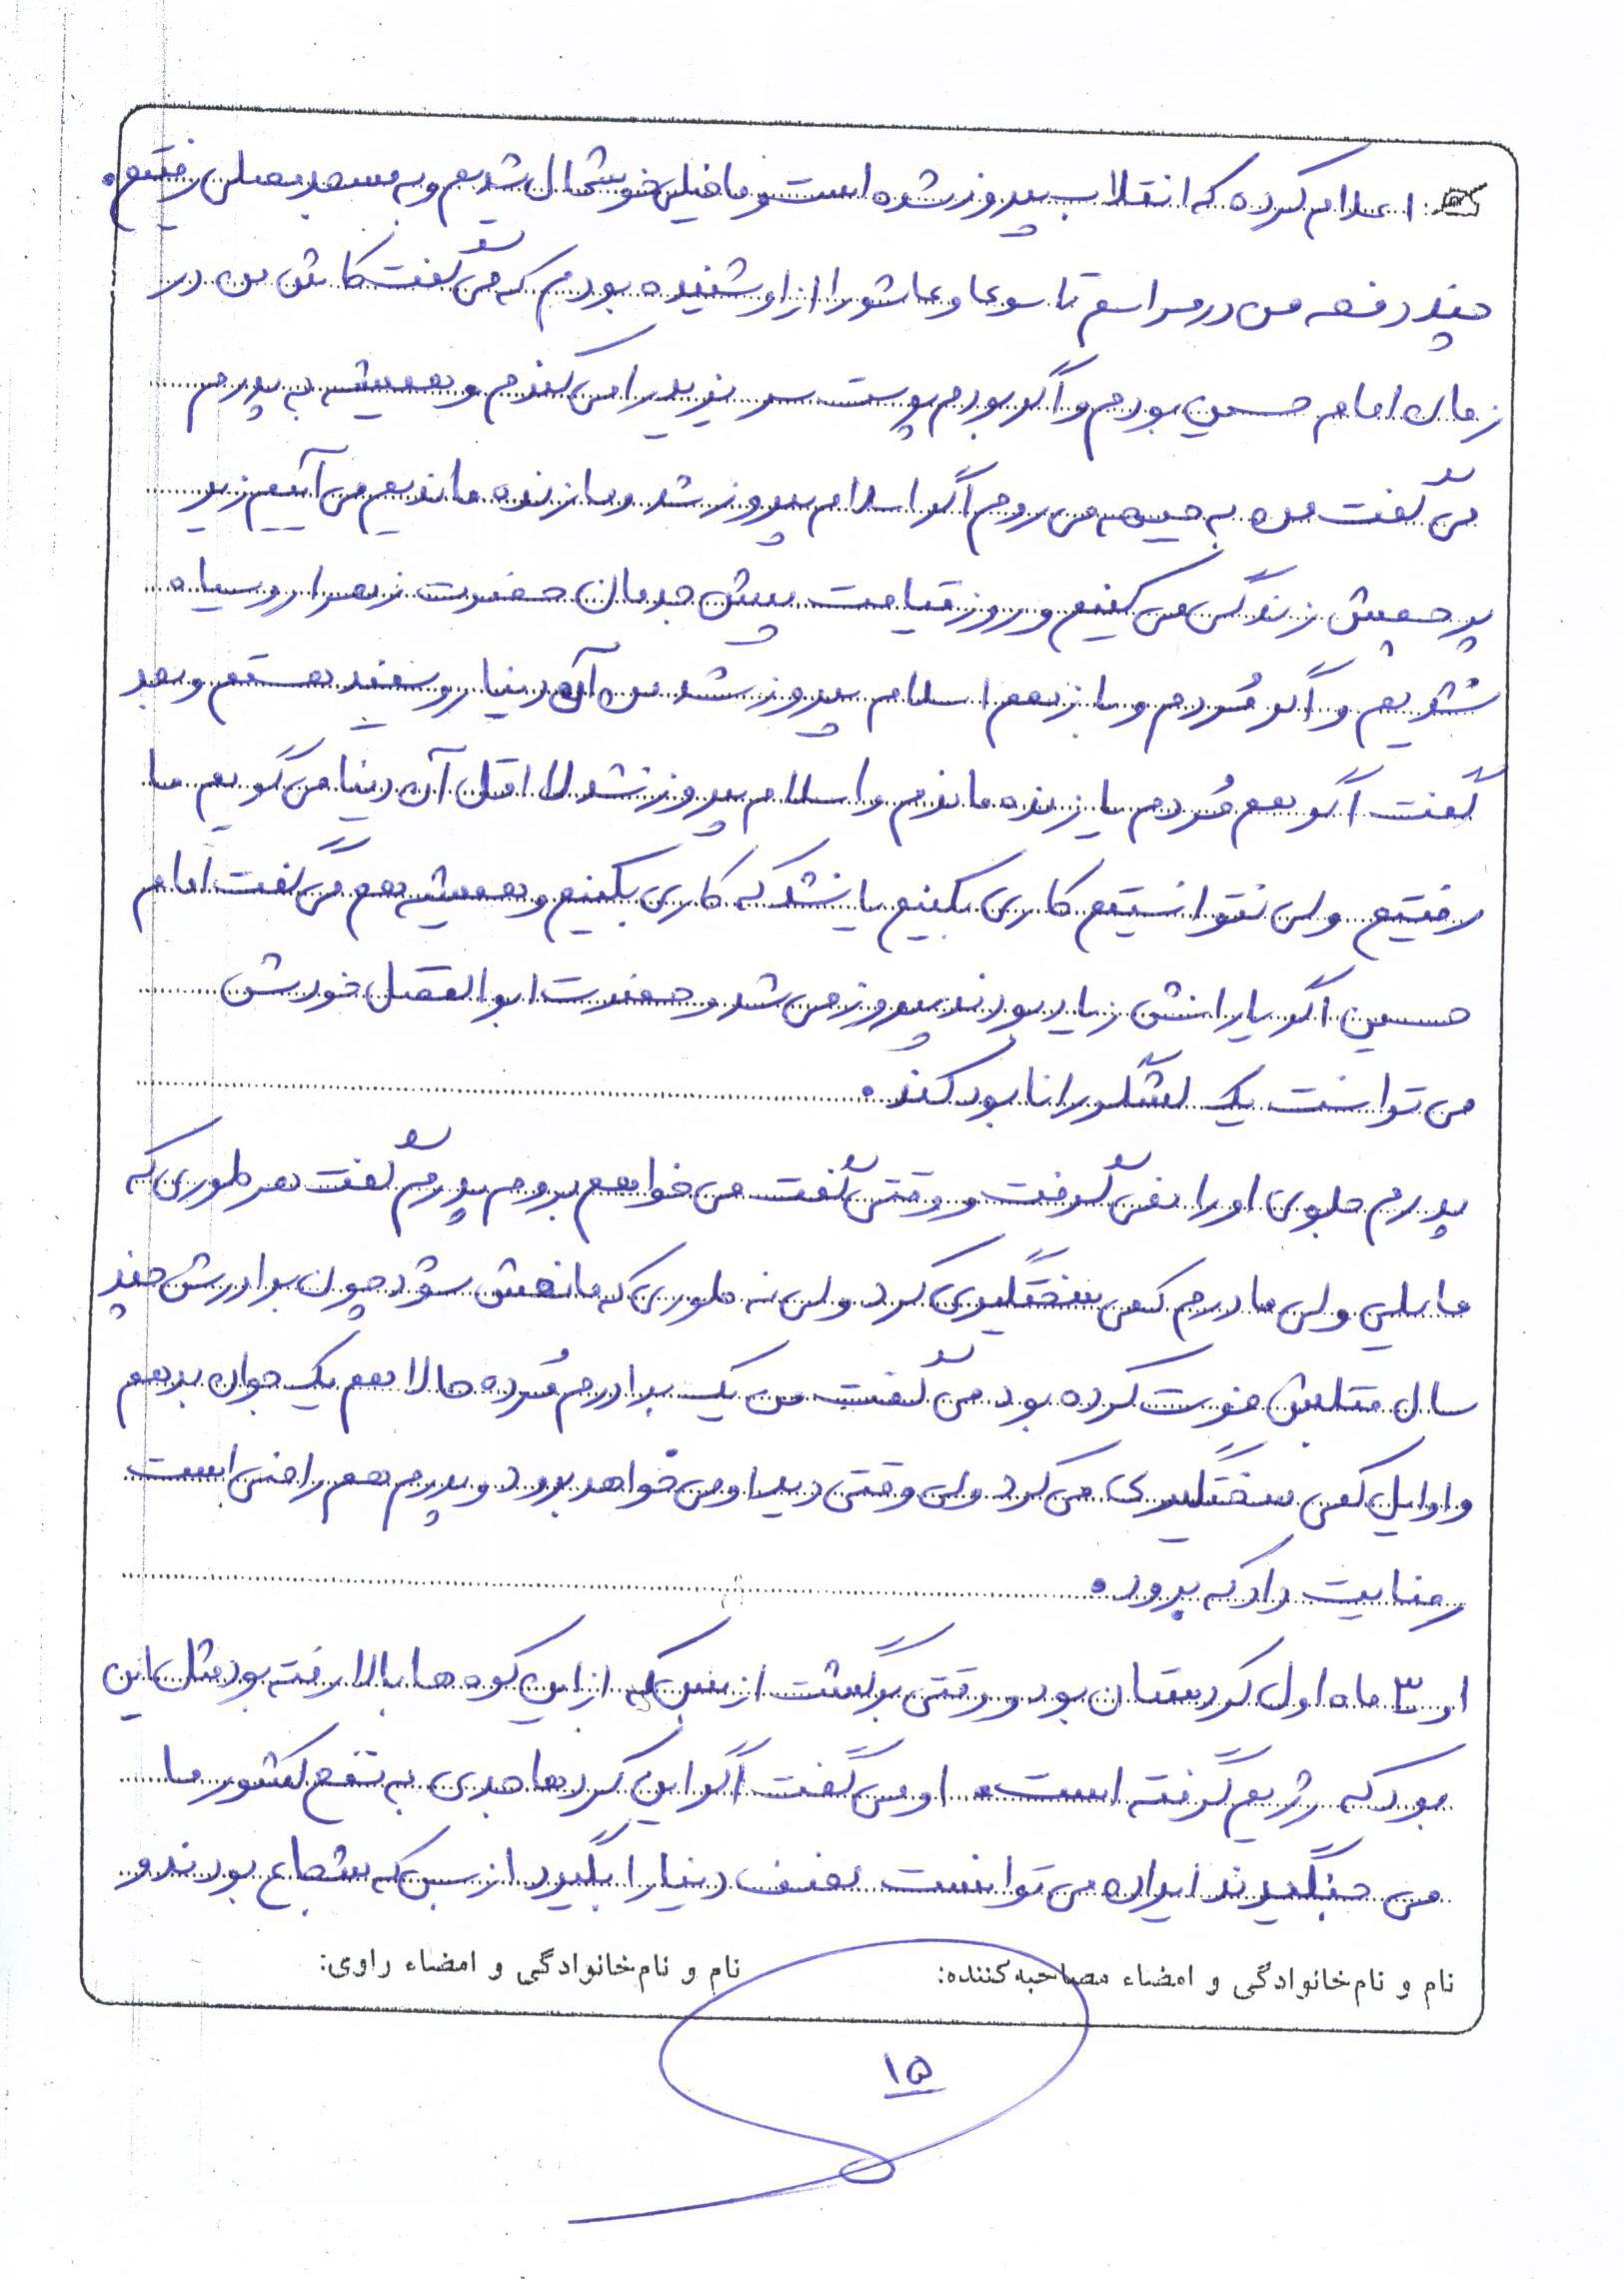 اعلام کرده که انقلاب پیروز شده است و ما خیلی خوشحال شدیم و به مسجد مصلی رفتیم.
چند دفعه من در مراسم تاسوعا و عاشورا از او شنیده بودم که می گفت کاش من در
زمان امام حسین بودم و اگر بودم پوست سر یزید را می کندم و همیشه به پدرم
می گفت من به جبهه می روم اگر اسلام پیروز شد و ما زنده ماندیم می آییم زیر
پرچمش زندگی می کنیم و روز قیامت پیش جدمان حضرت زهرا روسیاه
نشویم و اگر مُردم و باز هم اسلام پیروز شد من آن دنیا روسفید هستم و بعد
گفت اگر هم مُردم یا زنده ماندم و اسلام پیروز نشد لااقل آن دنیا می گویم ما
رفتیم ولی نتوانستیم کاری بکنیم یا نشد که کاری بکنیم و همیشه هم می گفت امام
حسین اگر یارانش زیاد بودند پیروز می شد و حضرت ابوالفضل خودش
می توانست یک لشگر را نابود کند.
پدرم جلوی او را نمی گرفت و وقتی گفت می خواهم بروم پدرم گفت هر طوری که
مایلی ولی مادرم کمی سختگیری کرد ولی نه طوری که مانعش شود چون برادرش چند
سال قبلش فوت کرده بود می گفت من یک برادرم مُرده حالا هم یک جوان بدهم
و اوایل کمی سختگیری می کرد ولی وقتی دید او می خواهد برود و پدرم هم راضی است
رضایت داد که برود.
او ۳ ماه اول کردستان بود و وقتی برگشت از بس که از این کوه ها بالا رفته بود مثل این
بود که رژیم گرفته است. او می گفت اگر این کردها جدی به نفع کشور ما
می جنگیدند ایران می توانست نصف دنیا را بگیرد از بس که شجاع بودند و
نام و نام خانوادگی و امضاء مصاحبه کننده: نام و نام خانوادگی و امضاء راوی:
۱۵